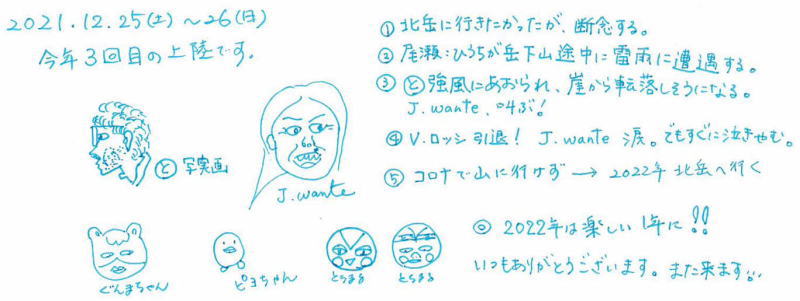 2021.12.25(土)〜26(日)
今年3回目の上陸です。
① 北岳に行きたかったが、断念する。
② 尾瀬:ひうちが岳下山途中に雷雨に遭遇する。
③ と 強風にあおられ、崖から転落しそうになる。
J.wante、叫ぶ!
④ V.ロッシ 引退! J.wante 涙。でもすぐに泣きやむ。
⑤ コロナで山に行けず → 2022年 北岳へ行く
◎ 2022年は楽しい1年に!!
いつもありがとうございます。また来ます!!
と 写実画
J.wante
ぐんまちゃん
ピヨちゃん
とらまる
とらまる